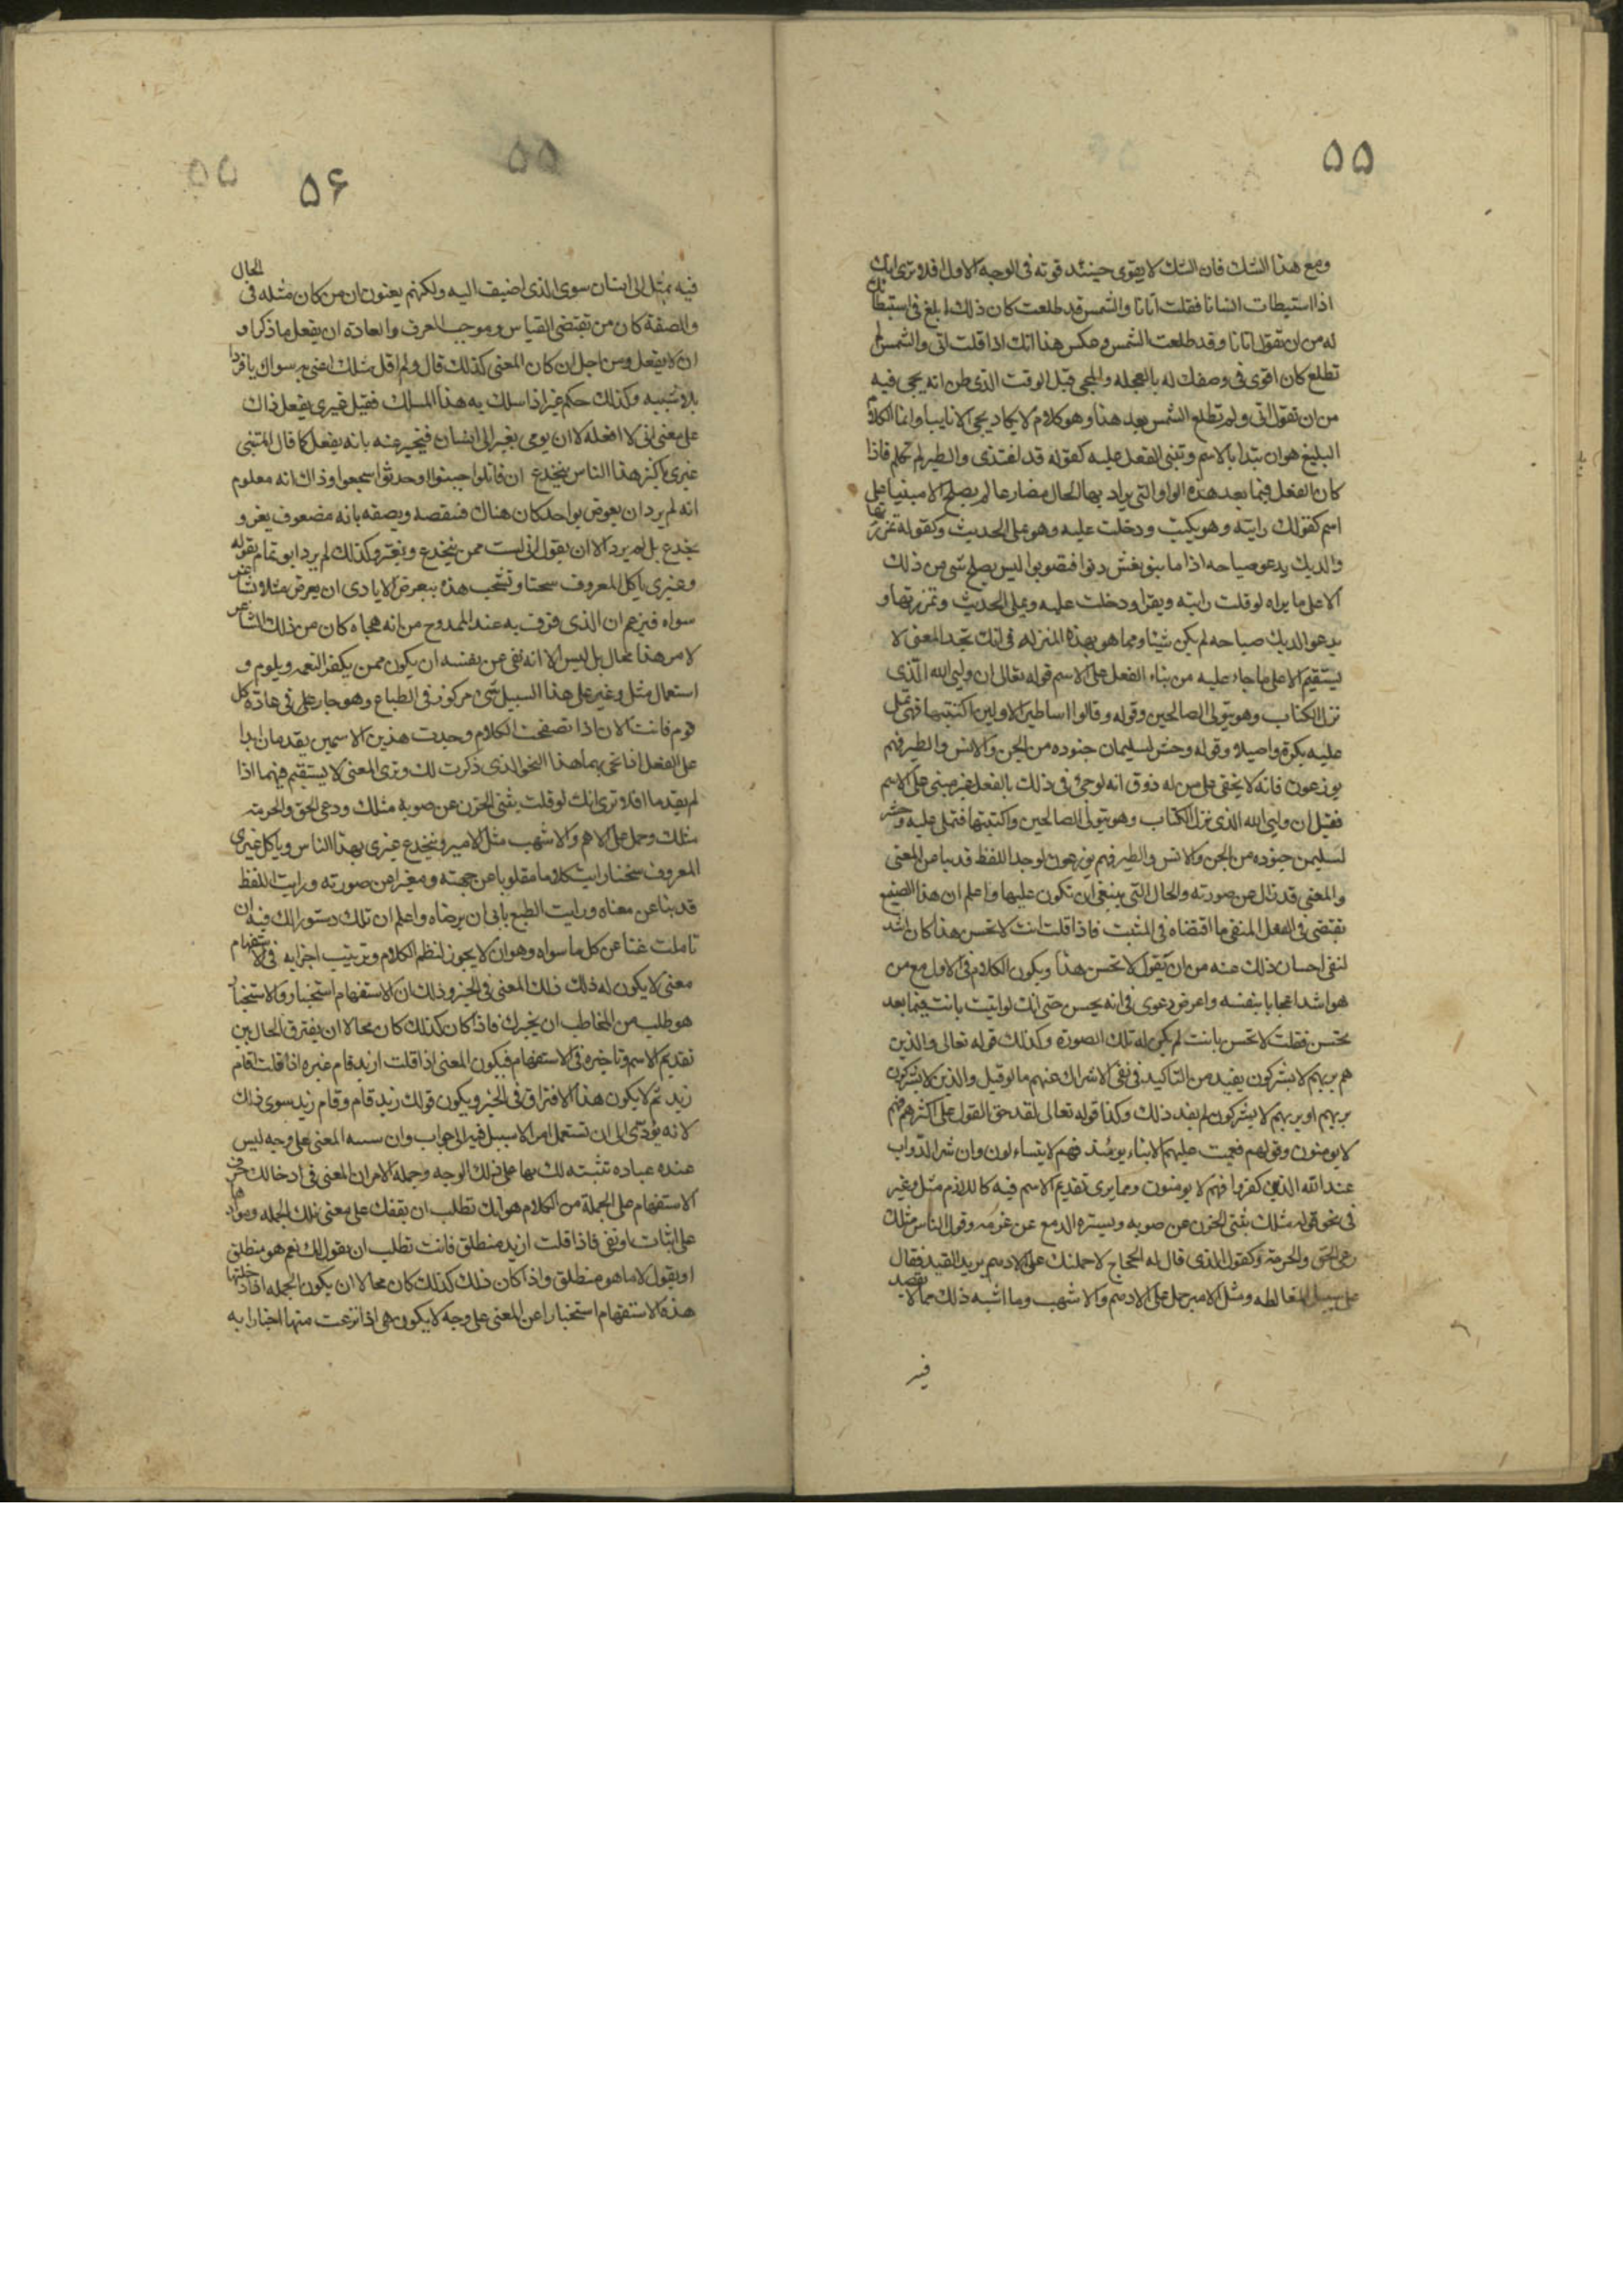 ۵۵
ومع هذا الشك فان الشك لا يقوى حينئذ قوته فى الوجه الاول افلا ترى انك
اذا استبطات انسانا فقلت اتانا والشمس قد طلعت كان ذلك ابلغ فى استبطائك
له من ان تقول اتانا وقد طلعت الشمس وعكس هذا انك اذا قلت اتى والشمس لم
تطلع كان اقوى فى وصفك له بالعجله والمجى قبل الوقت الذى ظن انه يجى فيه
من ان تقول اتى ولم تطلع الشمس بعد هذا وهو كلام لا يكاد يجى الا نابيا وانما الكلام
البليغ هو ان تبدا بالاسم وتبنى الفعل عليه كقوله قد اغتدى والطير لم تكلم فاذا
كان الفعل فيما بعد هذه الواو التى يراد بها الحال مضارعا لم يصلح الا مبنيا على
اسم كقولك رايته وهو يكتب ودخلت عليه وهو يملى الحديث وكقوله تمززتها
والديك يدعو صباحه اذا ما بنو نعش دنوا فتصوبوا ليس يصلح شى من ذلك
الا على ما يراه لو قلت رايته ويقرا ودخلت عليه ويملى الحديث وتمززتها و
يدعو الديك صباحه لم يكن شيئا ومما هو بهذه المنزله فى انك تجد المعنى لا
يستقيم الا على ما جاء عليه من بناء الفعل على الاسم قوله تعالى ان وليى الله الذى
نزل الكتاب وهو يتولى الصالحين وقوله وقالوا اساطير الاولين اكتتبها فهى تملى
عليه بكرة واصيلا وقوله وحشر لسليمان جنوده من الجن والانس والطير فهم
يوزعون فانه لا يخفى على من له ذوق انه لو جىء فى ذلك بالفعل غير مبنى على الاسم
فقيل ان وليى الله الذى نزل الكتاب وهو يتولى الصالحين واكتتبها فتملى عليه وحشر
لسليمن جنوده من الجن والانس والطير فهم يوزعون لوجد اللفظ قد نبا عن المعنى
والمعنى قد زال عن صورته والحال التى ينبغى ان تكون عليها واعلم ان هذا الصنيع
تقتضى فى الفعل المنفى ما اقتضاه فى المثبت فاذا قلت انت لا تحسن هذا كان اشد
لنفى احسان ذلك عنه من ان تقول لا تحسن هذا ويكون الكلام فى الاول مع من
هو اشد اعجابا بنفسه واعرض دعوى فى انه يحسن حتى انك لو اتيت بانت فيما بعد
تحسن فقلت لا تحسن بانت لم يكن له تلك الصورة وكذلك قوله تعالى والذين
هم بربهم لا يشركون يفيد من التاكيد فى نفى الاشراك عنهم ما لو قيل والذين لا يشركون
بربهم او بربهم لا يشركون لم يفد ذلك وكذا قوله تعالى لقد حق القول على اكثرهم فهم
لا يومنون وقوله فعميت عليهم الانباء يومئذ فهم لا يتساءلون وان شر الدواب
عند الله الذين كفروا فهم لا يومنون ومما يرى تقديم الاسم فيه كاللازم مثل وغير
فى نحو قوله مثلك يثنى الحزن عن صوبه ويسترد الدمع عن غربه وقول الناس مثلك
رعى الحق والحرمة وكقول الذى قال له الحجاج لاحملنك على الادهم يريد القيد فقال
على سبيل المغالطه ومثل الامير حمل على الادهم والاشهب وما اشبه ذلك مما لا يقصد
فيه
۵۵
۵۶
۵۵
فيه بمثل الى انسان سوى الذى اضيف اليه ولكنهم يعنون ان من كان مثله فى الحال
والصفة كان من تقتضى القياس وموجب العرف والعادة ان يفعل ما ذكر او
ان لا يفعل ومن اجل ان كان المعنى كذلك قال ولم اقل مثلك اعنى به سواك يا فردا
بلا شبيه وكذلك حكم غير اذا سلك به هذا المسلك فقيل غيرى يفعل ذاك
على معنى انى لا افعله لا ان يومى بغير الى انسان فيخبر عنه بانه يفعل كما قال المتنبى
غيرى باكثر هذا الناس ينخدع ان قاتلوا جبنوا او حدثوا سجعوا وذاك انه معلوم
انه لم يرد ان يعرض بواحد كان هناك فينقصه ويصفه بانه مضعوف يغر و
يخدع بل لم يرد الا ان يقول انى لست ممن ينخدع ويغتر وكذلك لم يرد ابو تمام بقوله
وغيرى ياكل المعروف سحتا وتشحب عنده بيض الايادى ان يعرض مثلا بشاعر
سواه فيزعم ان الذى قرف به عند الممدوح من انه هجاه كان من ذلك الشاعر
لا من هذا محال بل ليس الا انه نفى عن نفسه ان يكون ممن يكفر النعمه ويلوم و
استعمال مثل وغير على هذا السبيل شى مركوز فى الطباع وهو جار على فى عادة كل
قوم فانت الان اذا تصفحت الكلام وجدت هذين الاسمين يقدمان ابدا
على الفعل اذا نحى بهما هذا النحو الذى ذكرت لك وترى المعنى لا يستقيم فيهما اذا
لم يقدما افلا ترى انك لو قلت يثنى الحزن عن صوبه مثلك ودعى الحق والحرمة
مثلك وحمل على الادهم والاشهب مثل الامير وينخدع غيرى بهذا الناس وياكل غيرى
المعروف سحتا رايت كلاما مقلوبا عن جهته ومغيرا عن صورته ورايت اللفظ
قد نبا عن معناه ورايت الطبع يابى ان يرضاه واعلم ان تلك دستورا لك فيه ان
تاملت غنا عن كل ما سواه وهو ان لا يجوز لنظم الكلام وترتيب اجزايه فى الاستفهام
معنى لا يكون له ذلك المعنى فى الخبر وذلك ان الاستفهام استخبار والاستخبار
هو طلب من المخاطب ان يخبرك فاذا كان كذلك كان محالا ان يفترق الحال بين
تقديم الاسم وتاخيره فى الاستفهام فيكون المعنى اذا قلت ازيد قام غيره اذا قلت اقام
زيد ثم لا يكون هذا الافتراق فى الخبر ويكون قولك زيد قام وقام زيد سوى ذاك
لانه يؤدى الى ان تستعمل امرا لا سبيل فيه الى جواب وان المعنى على وجه ليس
عنده عباره تثبته لك بها على ذلك الوجه وجملة الامر ان المعنى فى ادخالك حرف
الاستفهام على الجملة من الكلام هو انك تطلب ان يقفك على معنى تلك الجمله ومودها
على اثبات او نفى فاذا قلت ازيد منطلق فانت تطلب ان يقول لك نعم هو منطلق
او يقول لا ما هو منطلق واذا كان ذلك كذلك كان محالا ان يكون الجمله اذا دخلتها
هذه الاستفهام استخبارا عن المعنى على وجه لا يكون هى اذا نزعت منها اخبارا به